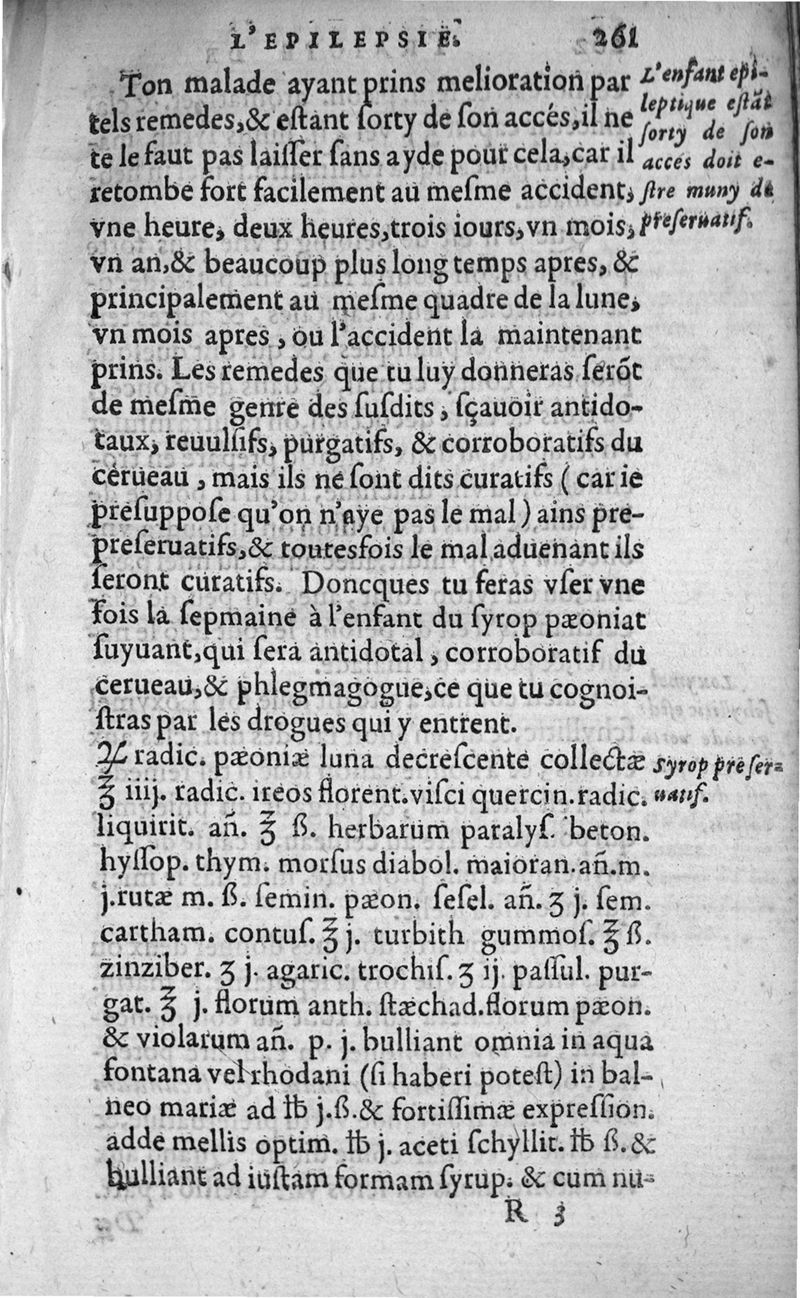 L'EPILEPSIE. 261
Ton malade ayant prins melioration par
tels remedes,& eſtant ſorty de ſon accés,il ne
te le faut pas laiſſer ſans ayde pour cela,car il
retombe fort facilement au meſme accident,
vne heure, deux heures,trois iours,vn mois,
vn an,& beaucoup plus long temps apres, &
principalement au meſme quadre de la lune,
vn mois apres , ou l'accident la maintenant
prins. Les remedes que tu luy donneras ſerõt
de meſme genre des ſuſdits , ſçauoir antido-
taux, reuulſifs, purgatifs, & corroboratifs du
cerueau , mais ils ne ſont dits curatifs ( car ie
preſuppoſe qu'on n'aye pas le mal ) ains pre-
preſeruatifs,& toutesfois le mal aduenant ils
ſeront curatifs. Doncques tu feras vſer vne
fois la ſepmaine à l'enfant du ſyrop pæoniat
ſuyuant,qui ſera antidotal , corroboratif du
cerueau,& phlegmagogue,ce que tu cognoi-
ſtras par les drogues qui y entrent.
♃ radic. pæoniæ luna decreſcente collectæ
℥ iiij. radic. ireos florent.viſci quercin.radic.
liquirit. añ. ℥ ß. herbarum paralyſ. beton.
hyſſop. thym. morſus diabol. maioran.añ.m.
j.rutæ m. ß. ſemin. pæon. ſeſel. añ. ʒ j. ſem.
cartham. contuſ. ℥ j. turbith gummoſ. ℥ ß.
zinziber. ʒ j. agaric. trochiſ. ʒ ij. paſſul. pur-
gat. ℥ j. florum anth. ſtæchad.florum pæon.
& violarum añ. p. j. bulliant omnia in aqua
fontana vel rhodani (ſi haberi poteſt) in bal-
neo mariæ ad ℔ j.ß.& fortiſſimæ expreſſion.
adde mellis optim. ℔ j. aceti ſchyllit. ℔ ß. &
bulliant ad iuſtam formam ſyrup. & cum nu-
R 3
L'enfant epi-
leptique eſtãt
ſorty de ſon
accés doit e-
ſtre muny de
preſeruatif.
Syrop preſer-
uatif.